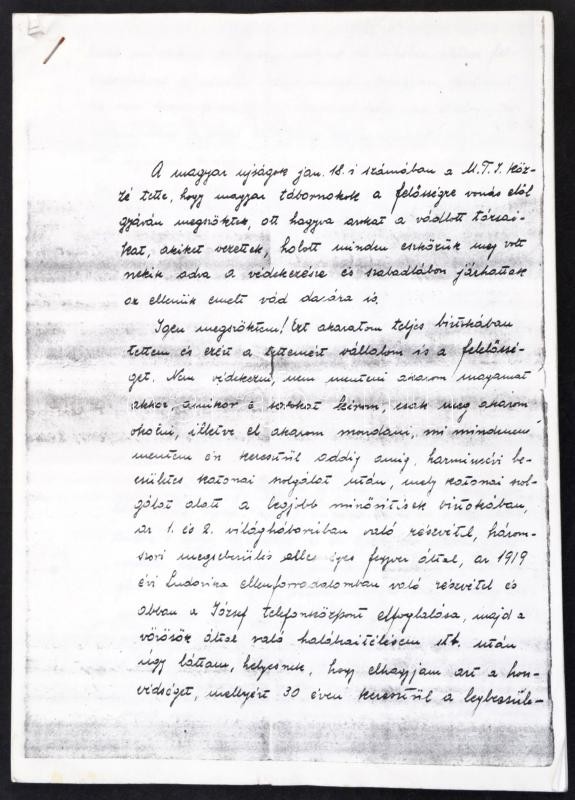 A magyar ujságok jan. 18.-i számában a M.T.I. köz-
zé tette, hogy magyar tábornokok a felősségre vonás elől
gyáván megszöktek, ott hagyva azokat a vádlott társai-
kat, akiket vezettek, holott minden eszközük meg volt
nekik adva a védekezésre és szabadlábon járhattak
az ellenük emelt vád dacára is.
Igen megszöktem! Ezt akaratom teljes birtokában
tettem és ezért a tettemért vállalom is a felelőssé-
get. Nem védekezni, nem menteni akarom magamat
akkor, amikor e sorokat leírom, csak meg akarom
okolni, illetve el akarom mondani, mi mindenen
mentem én keresztül addig amig, harmincévi be-
csületes katonai szolgálat után, mely katonai szol-
gálat alatt a legjobb minősítések birtokában,
az 1. és 2. világháborúban való részvétel, három-
szori megsebesülés ellenséges fegyver által, az 1919
évi Ludovika ellenforradalomban való részvétel és
abban a József telefonközpont elfoglalása, majd a
vörösök által való halálraítélésem stb. után
úgy láttam, helyesnek, hogy elhagyjam azt a hon-
védséget, mellyért 30 éven keresztül a legbecsüle-